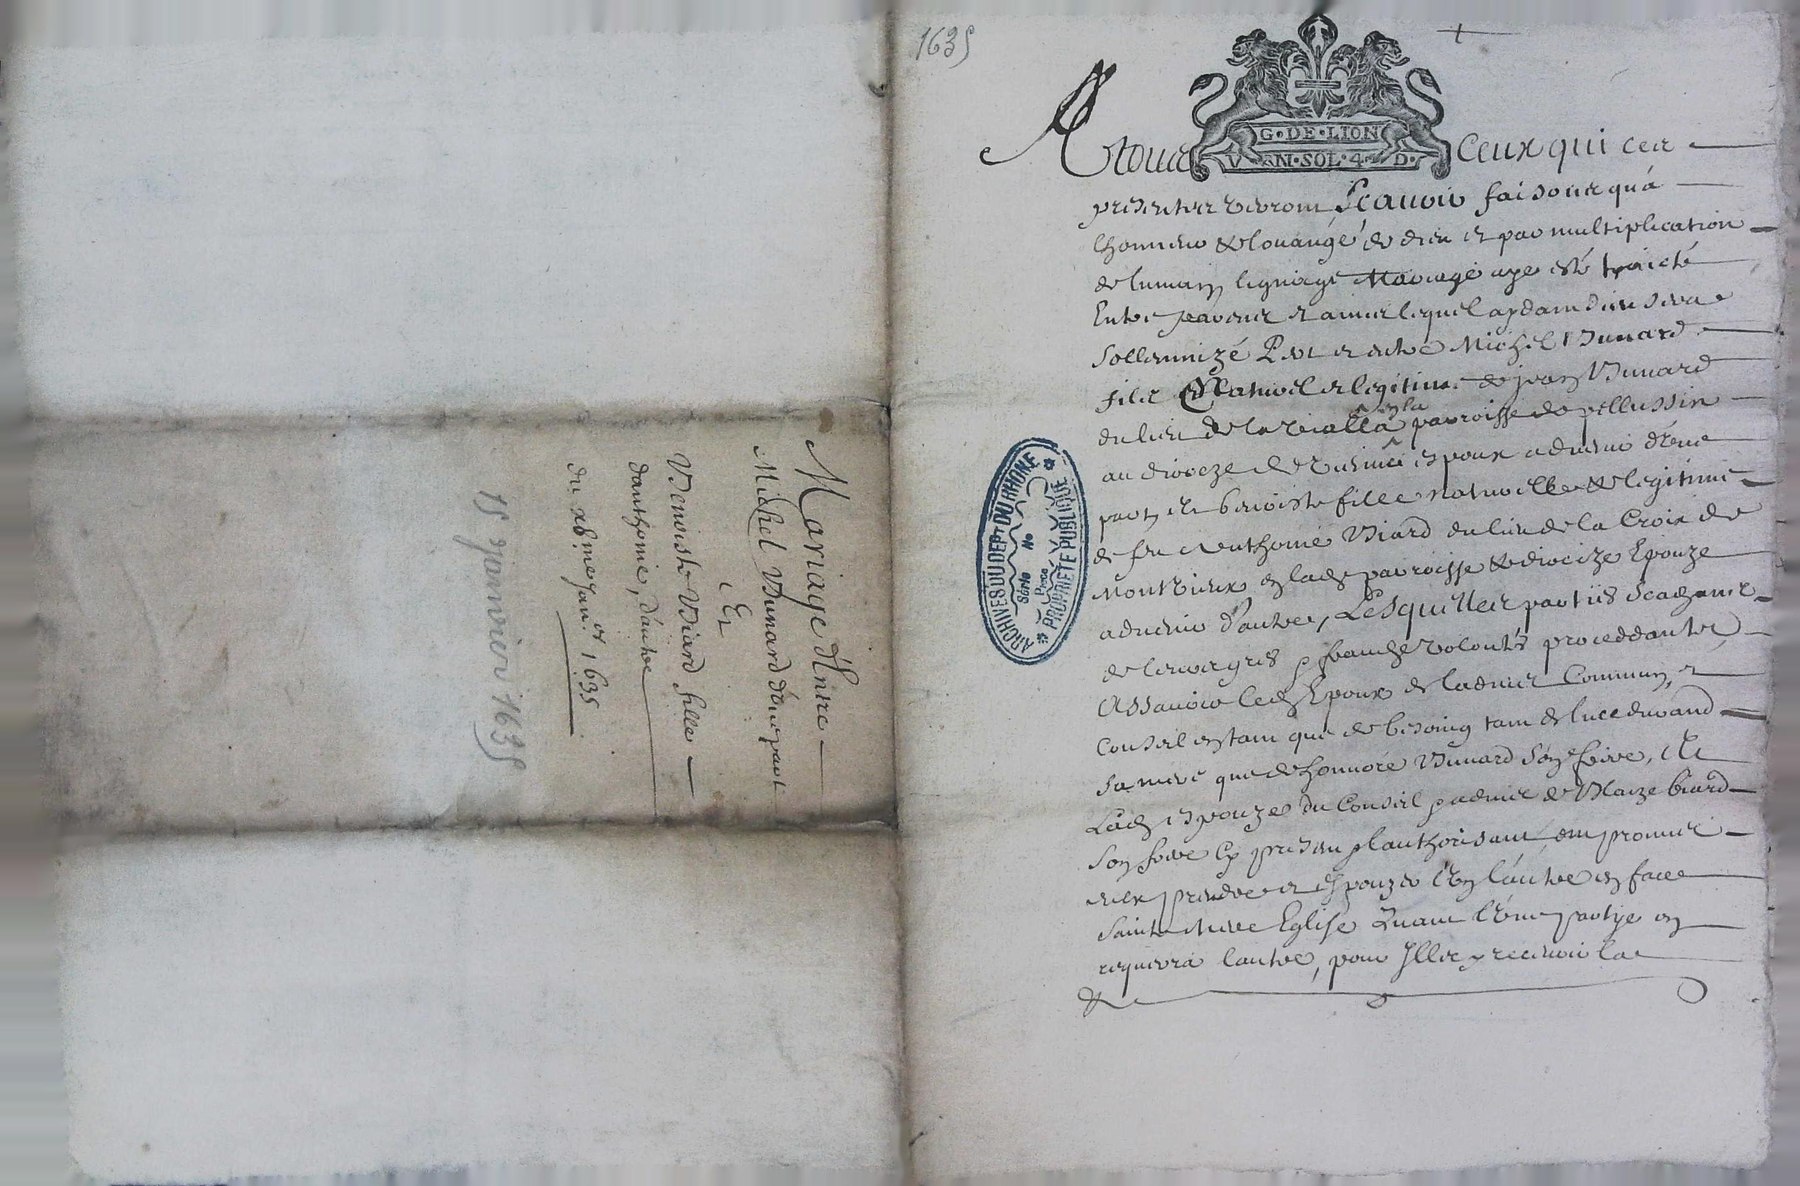 Mariage d'Entre
Michel Vunard d'une part
Et
Benoiste Viard fille
d'anthoine, d'autre
du xv.me Jan.er 1635
15 Janvier 1635
1635
G·DE·LION
V SOL·4·D·
A tous Ceux qui ces
presentes verront Scavoir faisons qu'a
lhonneur & louange de dieu et par multiplication
de lumain lignage Mariage aye esté traicté
Entre lequel aydant dieu sera
Sollennizé Par et entre Michel Vunard
filz Naturel et legitime de jean Vunard
du lieu de la vialla en la parroisse de pellussin
au dioceze de vienne espoux advenir d'une
part, et benoiste fille naturelle & legitime
de feu Anthoine Viard du lieu de la Croix de
Montvieux en lade parroisse & dioceze Epouze
advenir d'autre, Lesquelles parties
de leurs gres franche volonté proceddantes
Assavoir led Epoux de ladvis Commun, et
Conseil en tant que de besoing tant de luce durand
sa mere que de honnoré Vunard son frere, Et
Lade espouze du Conseil advis de Blaize biard
son frere cy present lauthorisant, ont promis
eux prendre et espouzer l'un lautre en face
sainte Mere Eglise Quant l'une partye en
requerra lautre, pour Illec recevoir la
ARCHIVES DU DEPT DU RHÔNE
Série No
Pièce
PROPRIÉTÉ PUBLIQUE